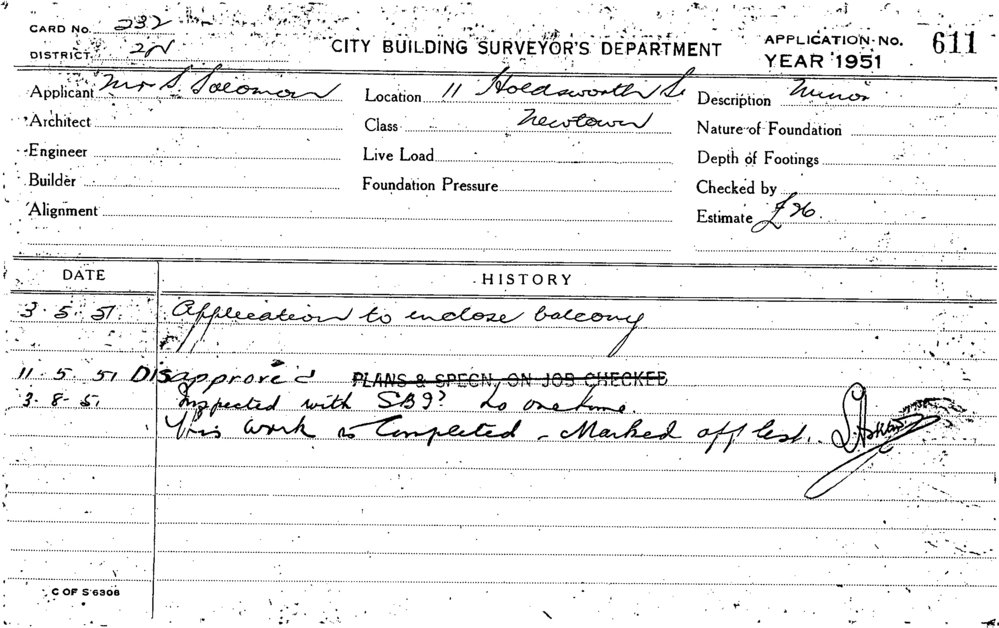 CARD No. 232
DISTRICT 2N
CITY BUILDING SURVEYOR'S DEPARTMENT
APPLICATION No. 611
YEAR 1951
Applicant Mr S. Solomon Location 11 Holdsworth St Description Minor
Architect Class Newtown Nature of Foundation
Engineer Live Load Depth of Footings
Builder Foundation Pressure Checked by
Alignment Estimate £ 20.
DATE HISTORY
3. 5. 51. Application to enclose balcony
11. 5. 51 Disapproved PLANS & SPECN, ON JOB CHECKED
3. 8. 51 Inspected with SB9? no one home.
This work is Completed - Marked off list.
C OF S 6306